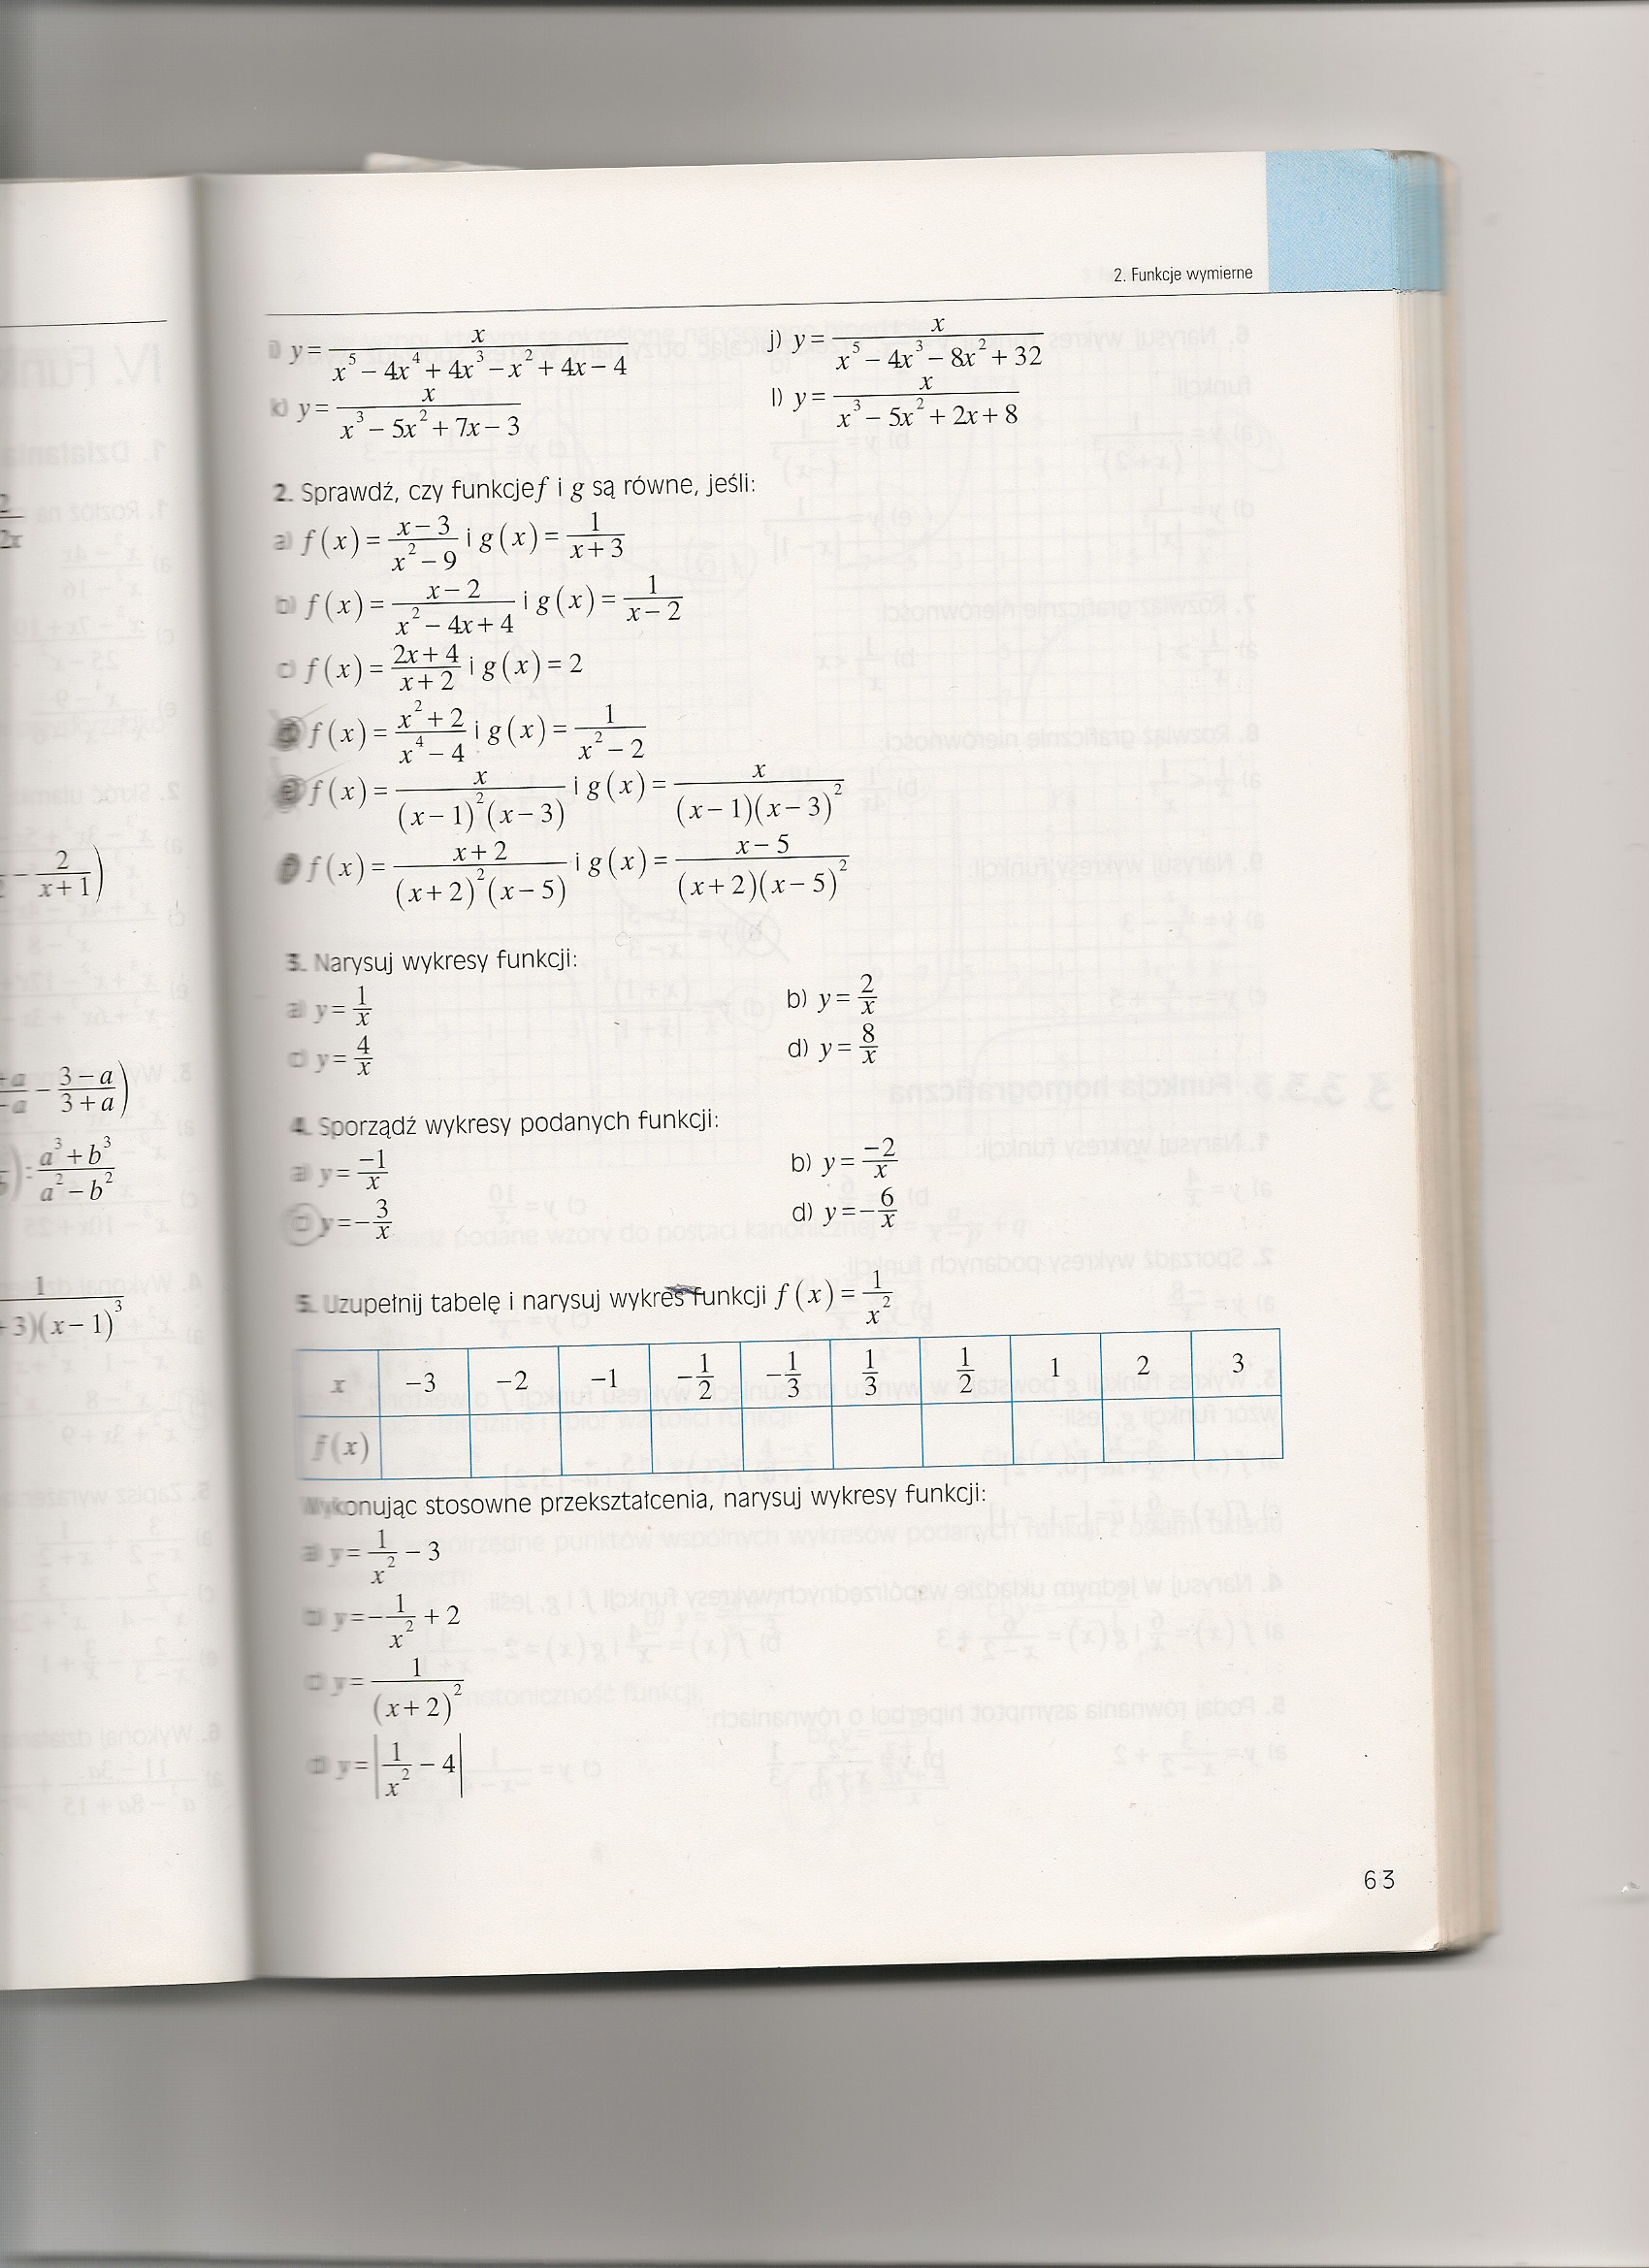 2. Funkcje wymierne
i) y = x / (x⁵ − 4x⁴ + 4x³ − x² + 4x − 4)
j) y = x / (x⁵ − 4x³ − 8x² + 32)
k) y = x / (x³ − 5x² + 7x − 3)
l) y = x / (x³ − 5x² + 2x + 8)
2. Sprawdź, czy funkcje f i g są równe, jeśli:
a) f(x) = (x − 3) / (x² − 9) i g(x) = 1 / (x + 3)
b) f(x) = (x − 2) / (x² − 4x + 4) i g(x) = 1 / (x − 2)
c) f(x) = (2x + 4) / (x + 2) i g(x) = 2
d) f(x) = (x² + 2) / (x⁴ − 4) i g(x) = 1 / (x² − 2)
e) f(x) = x / ((x − 1)²(x − 3)) i g(x) = x / ((x − 1)(x − 3)²)
f) f(x) = (x + 2) / ((x + 2)²(x − 5)) i g(x) = (x − 5) / ((x + 2)(x − 5)²)
3. Narysuj wykresy funkcji:
a) y = 1/x
b) y = 2/x
c) y = 4/x
d) y = 8/x
4. Sporządź wykresy podanych funkcji:
a) y = −1/x
b) y = −2/x
c) y = −3/x
d) y = −6/x
5. Uzupełnij tabelę i narysuj wykres funkcji f(x) = 1/x²
x −3 −2 −1 −1/2 −1/3 1/3 1/2 1 2 3
f(x)
Wykonując stosowne przekształcenia, narysuj wykresy funkcji:
a) y = 1/x² − 3
b) y = −1/x² + 2
c) y = 1 / (x + 2)²
d) y = |1/x² − 4|
63
− 2/(x + 1))
− (3 − a)/(3 + a))
: (a³ + b³)/(a² − b²)
3)(x − 1)³